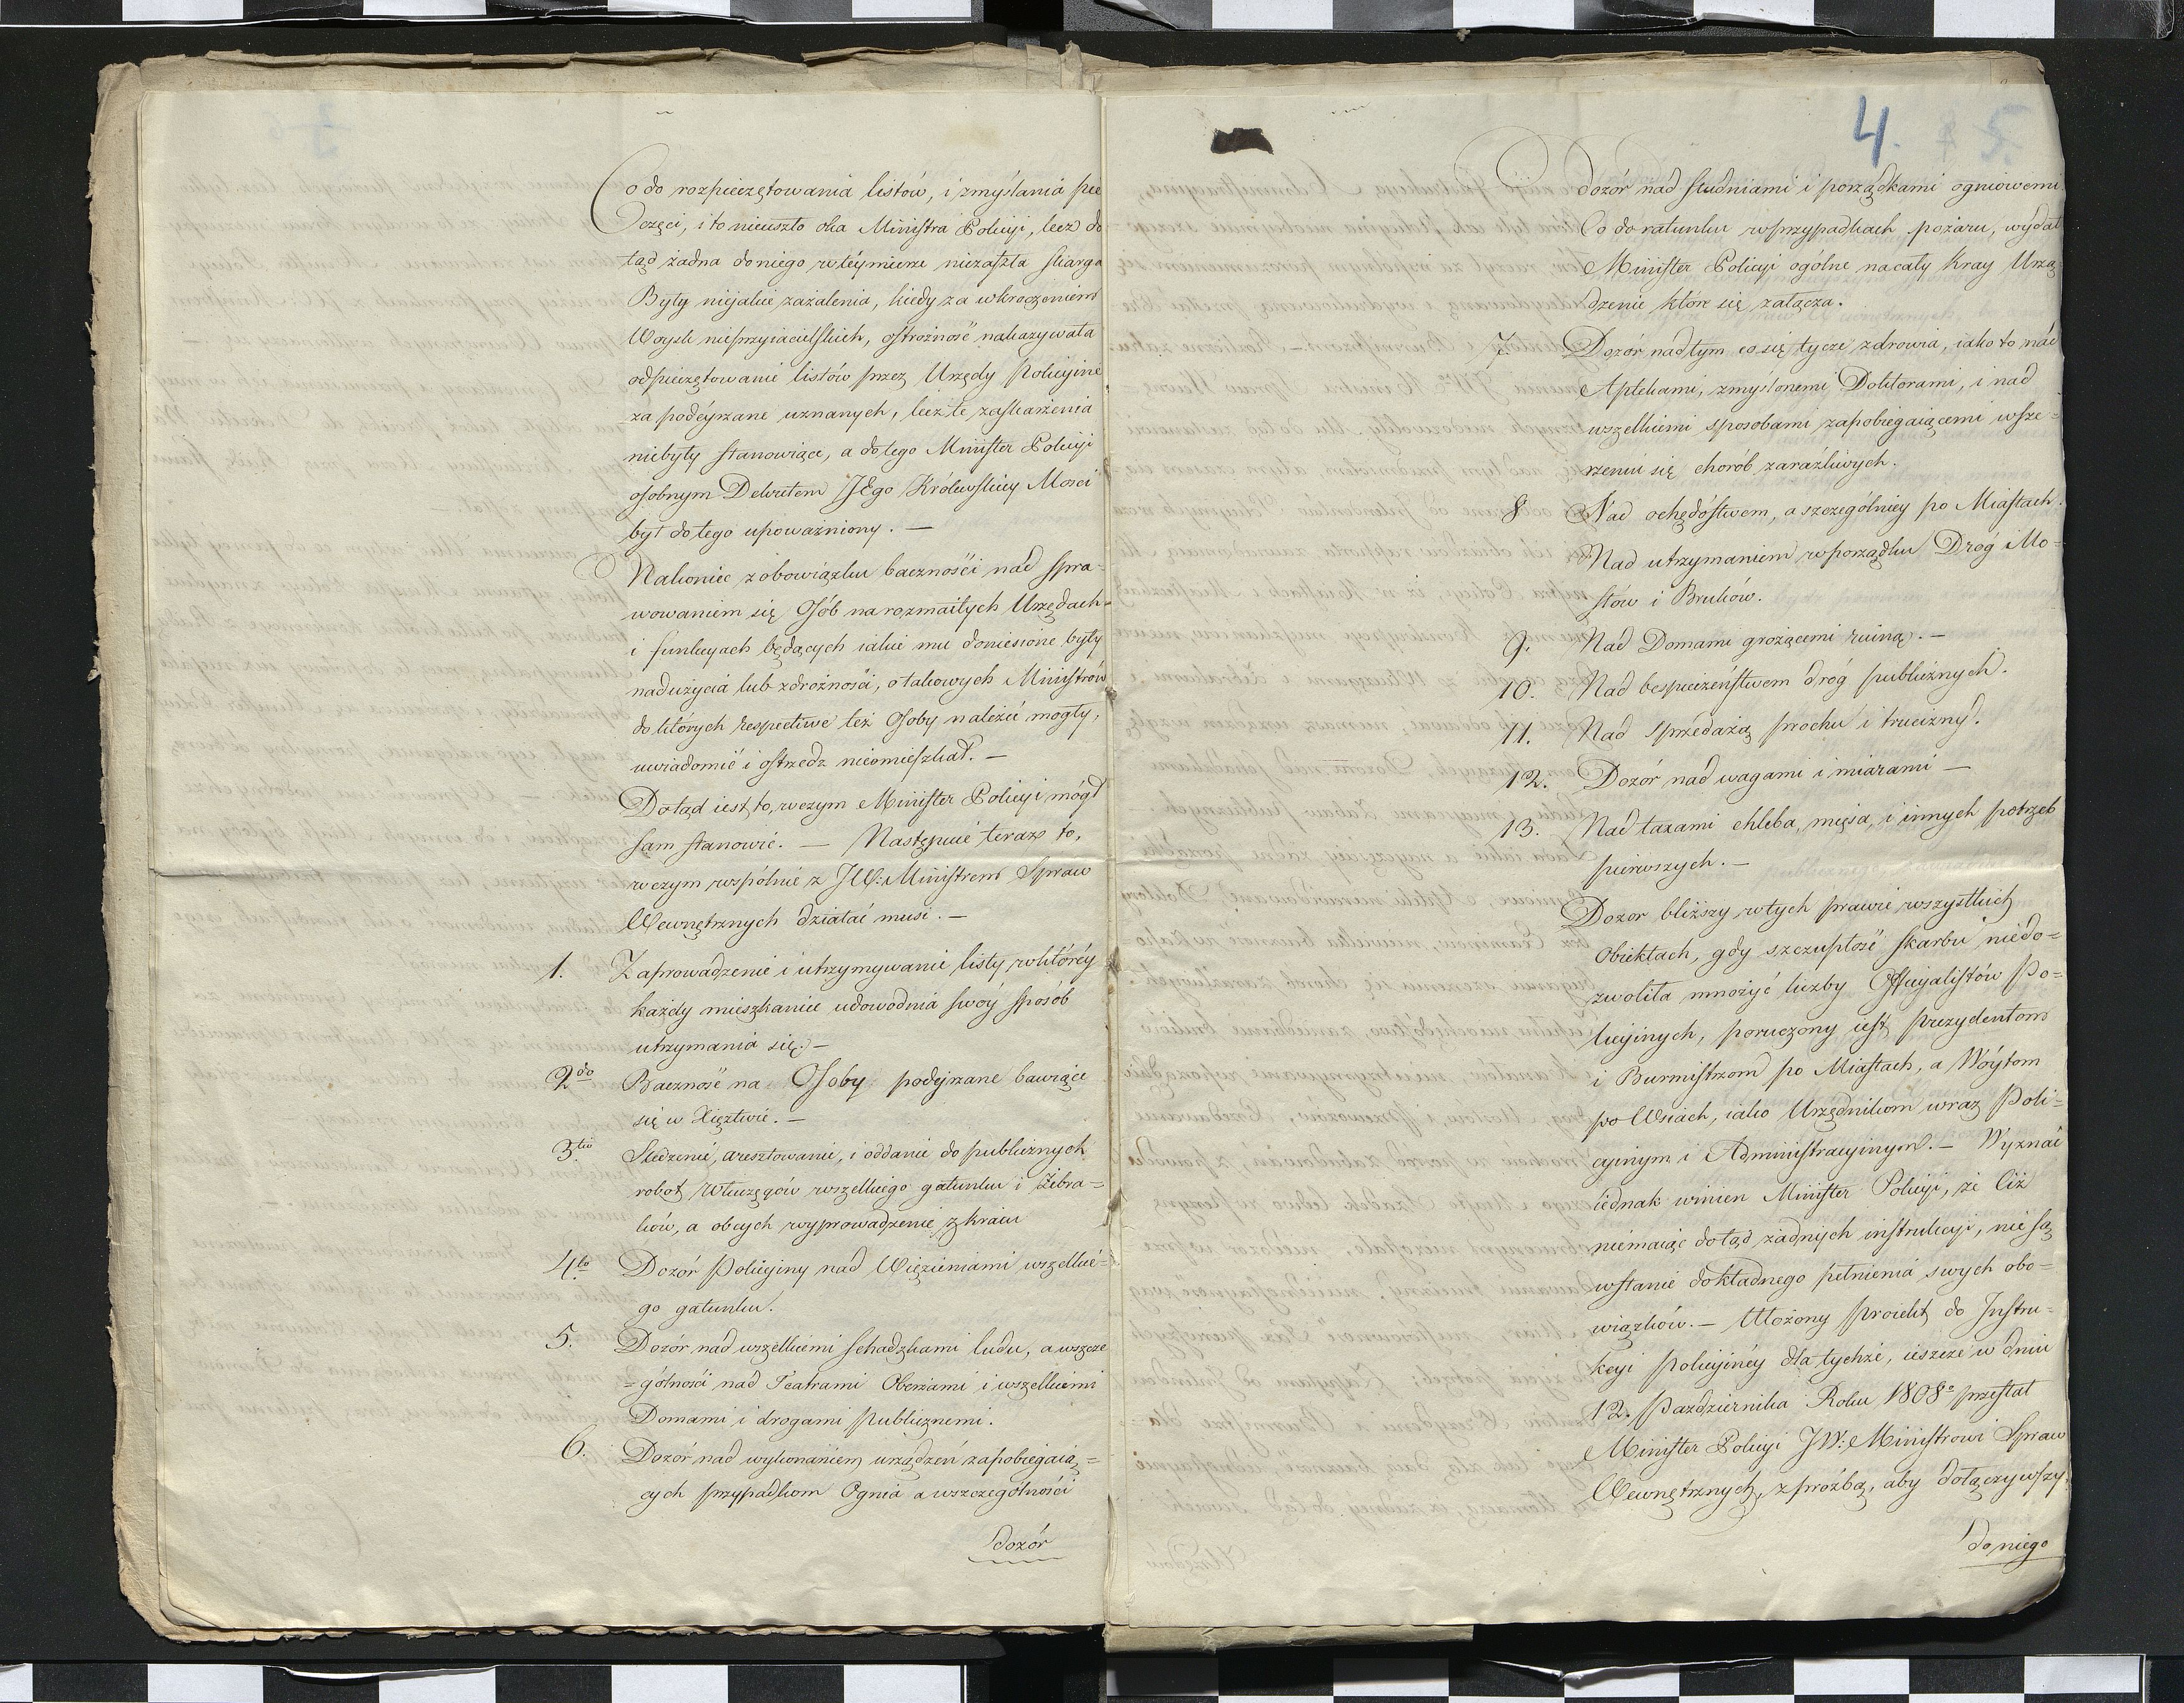 Co do rozpieczętowania listów, i zmyślania pie
częci, i to nieuszło oka Ministra Policyi, lecz do
tąd żadna do niego w téymierze niezaszła skarga
Były niejakie zażalenia, kiedy za wkroczeniem
Woysk nieprzyiacielskich, ostrożność nakazywała
odpieczętowanie listów przez Urzędy Policyine
za podéyrzane uznanych, lecz te zaskarżenia
niebyły stanowiące, a do tego Minister Policyi
osobnym Dekretem JEgo Królewskiey Mości
był do tego upoważniony. —
Nakoniec z obowiązku baczności nad spra-
wowaniem się Osób na rozmaitych Urzędach
i funkcyach będących iakie mu doniesione były
nadużycia lub zdrożności, o takowych Ministrów
do których respective też Osoby należeć mogły,
uwiadomić i ostrzedz nieomieszkał. —
Dotąd iest to, w czym Minister Policyi mógł
sam stanowić. — Następuie teraz to,
w czym wspólnie z JW: Ministrem Spraw
Wewnętrznych działać musi. —
1. Zaprowadzenie i utrzymywanie listy, w któréy
każdy mieszkaniec udowodnia swóy sposób
utrzymania się. —
2do Baczność na Osoby podejrzane bawiące
się w Xięztwie. —
3tio Sledzenie, aresztowanie, i oddanie do publicznych
robot Włuczęgów wszelkiego gatunku i Żebra=
ków, a obcych wyprowadzenie z kraiu
4to Dozór Policyiny nad Więzieniami wszelkie=
go gatunku.
5. Dozór nad wszelkiemi schadzkami ludu, a wszcze
=gólności nad Teatrami Oberżami i wszelkiemi
Domami i drogami publicznemi.
6. Dozór nad wykonaniem urządzeń zapobiegaią=
cych przypadkom Ognia a wszczególności
dozór
4.
dozór nad studniami i porządkami ogniowemi
Co do ratunku w przypadkach pożaru, wydał
Minister Policyi ogólne na cały Kray Urzą
dzenie które się załącza.
7. Dozór nad tym co się tycze zdrowia, iako to nad
Aptekami, zmyślonemi Doktorami, i nad
wszelkiemi sposobami zapobiegaiącemi wsze=
rzeniu się chorób zaraźliwych.
8 Nad ochędóstwem, a szczególniey po Miastach.
Nad utrzymaniem w porządku Dróg Mo-
stów i Bruków.
9. Nad Domami grożącemi ruiną. —
10. Nad bespieczeństwem dróg publicznych.
11. Nad sprzedażą prochu i trucizny.
12. Dozór nad wagami i miarami —
13. Nad taxami chleba, mięsa, i innych potrzeb
pierwszych. —
Dozor bliższy w tych prawie wszystkich
Obiektach, gdy szczupłość skarbu niedo=
zwoliła mnożyć liczby Officyalistów Po=
licyinych, poruczony iest prezydentom
i Burmistrzom po Miastach, a Wóytom
po Wsiach, iako Urzędnikom wraz Poli=
cyinym i Administracyinym. — Wyznać
iednak winien Minister Policyi, że Ciż
niemaiąc dotąd żadnych instrukcyi, nie są
wstanie dokładnego pełnienia swych obo=
wiązków. — Ułożony proiekt do Instru=
kcyi policyinéy dla tychże, ieszcze w dniu
12. Pazdziernika Roku 1808o przesłał
Minister Policyi JW: Ministrowi Spraw
Wewnętrznych, z prośbą, aby dołączywszy
do niego